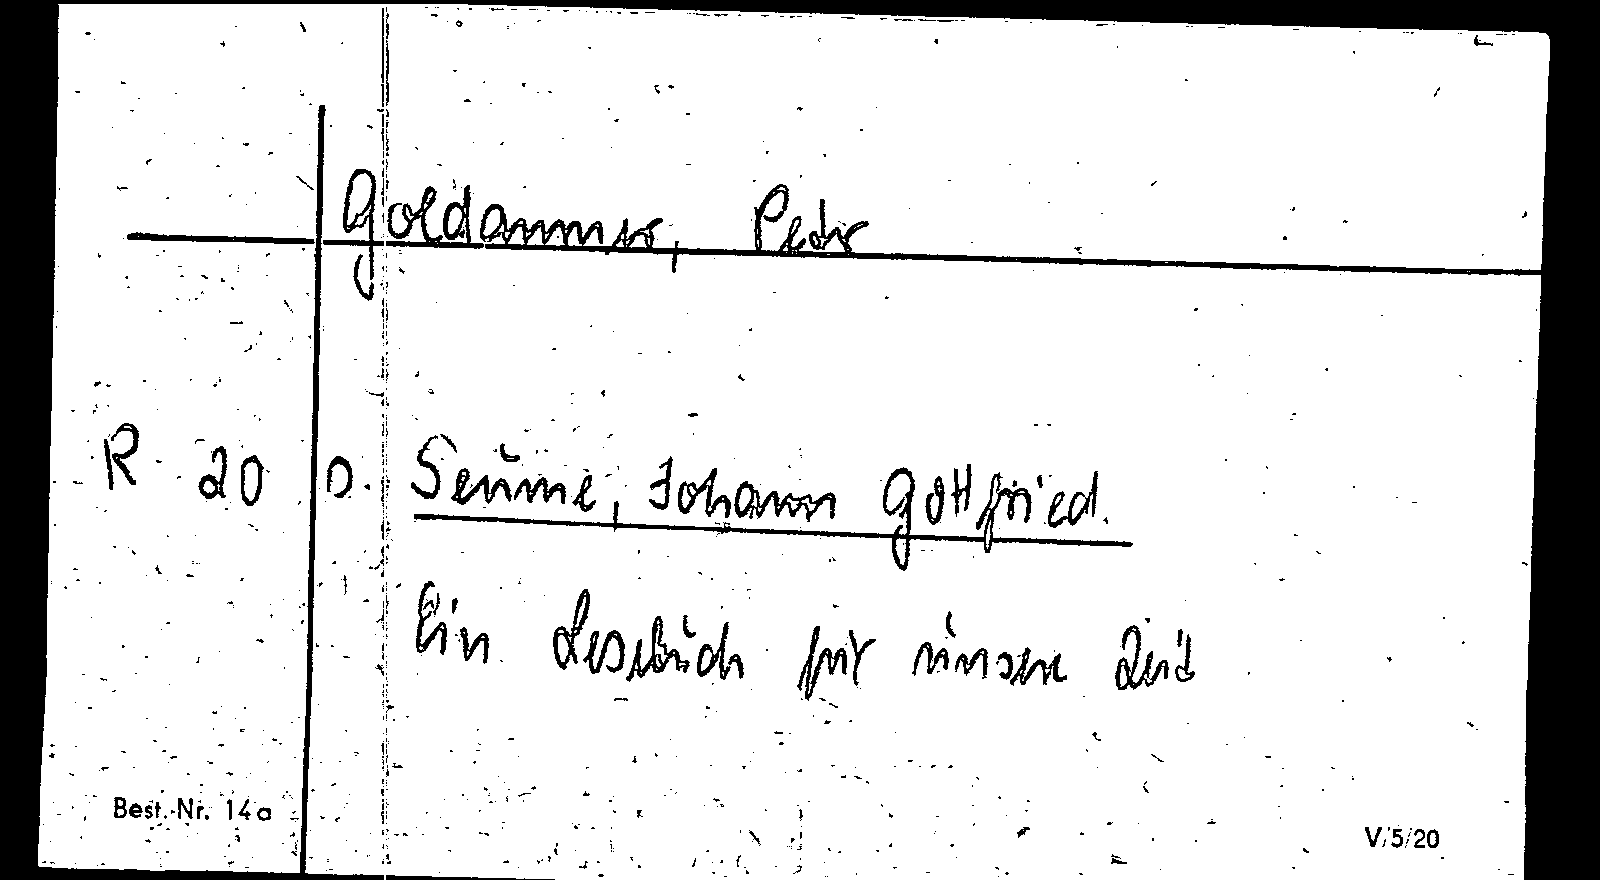 Goldammer, Peter
R 20 s. Seume, Johann Gottfried.
Ein Lesebuch für unsere Zeit
Best.-Nr. 14a
V/5/20